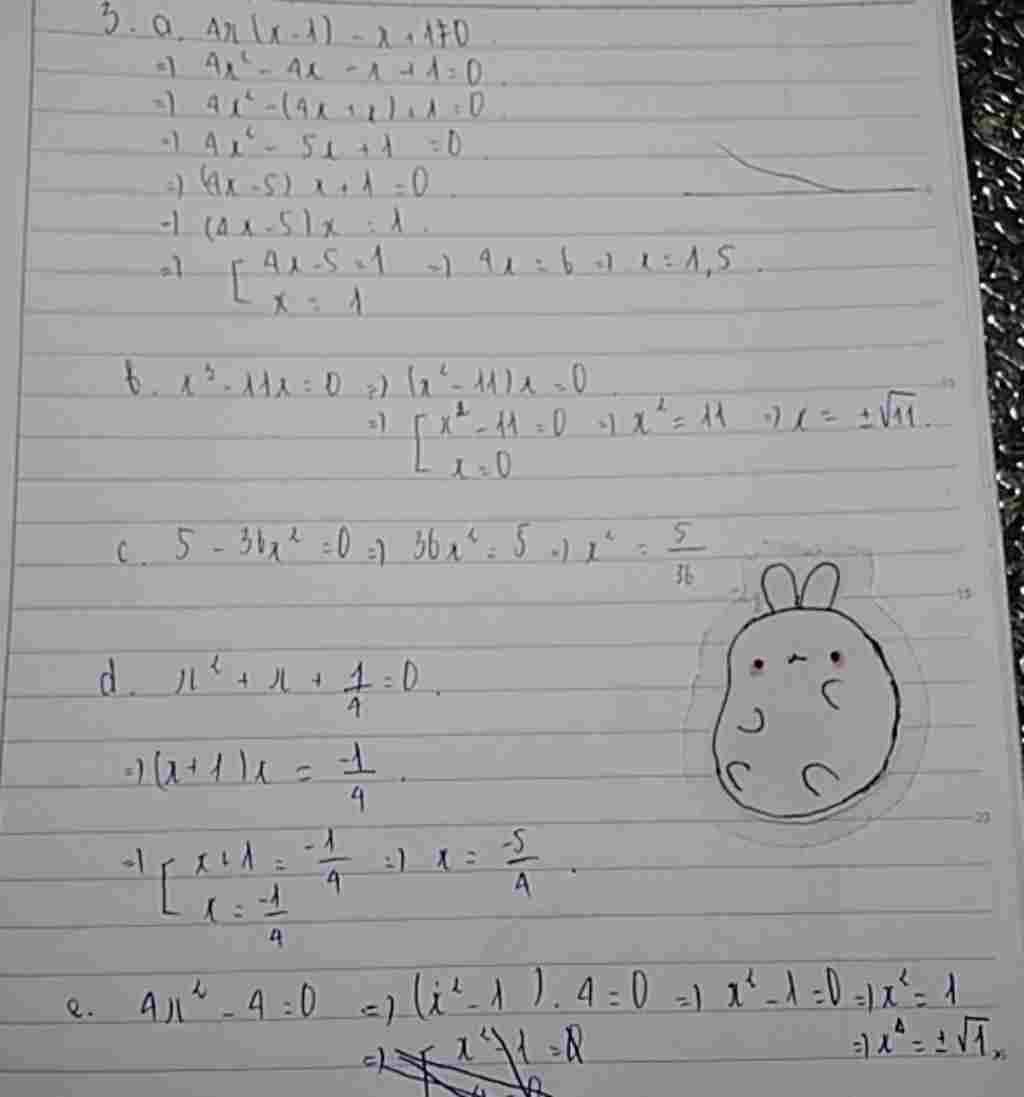 3. a. 4x(x-1) - x + 1 = 0
=) 4x² - 4x - x + 1 = 0.
=) 4x² - (4x + x) + 1 = 0
=) 4x² - 5x + 1 = 0
=) (4x - 5) x + 1 = 0.
=) (4x - 5) x = 1.
=) [ 4x - 5 = 1 =) 4x = 6 =) x = 1,5.
x = 1
b. x³ - 11x = 0 =) (x² - 11)x = 0
=) [ x² - 11 = 0 =) x² = 11 =) x = ±√11.
x = 0
c. 5 - 36x² = 0 =) 36x² = 5 =) x² = 5/36
d. x² + x + 1/4 = 0.
=) (x + 1)x = -1/4.
=) [ x + 1 = -1/4 =) x = -5/4.
x = -1/4
e. 4x² - 4 = 0 =) (x² - 1). 4 = 0 =) x² - 1 = 0 =) x² = 1
=) x = ±√1